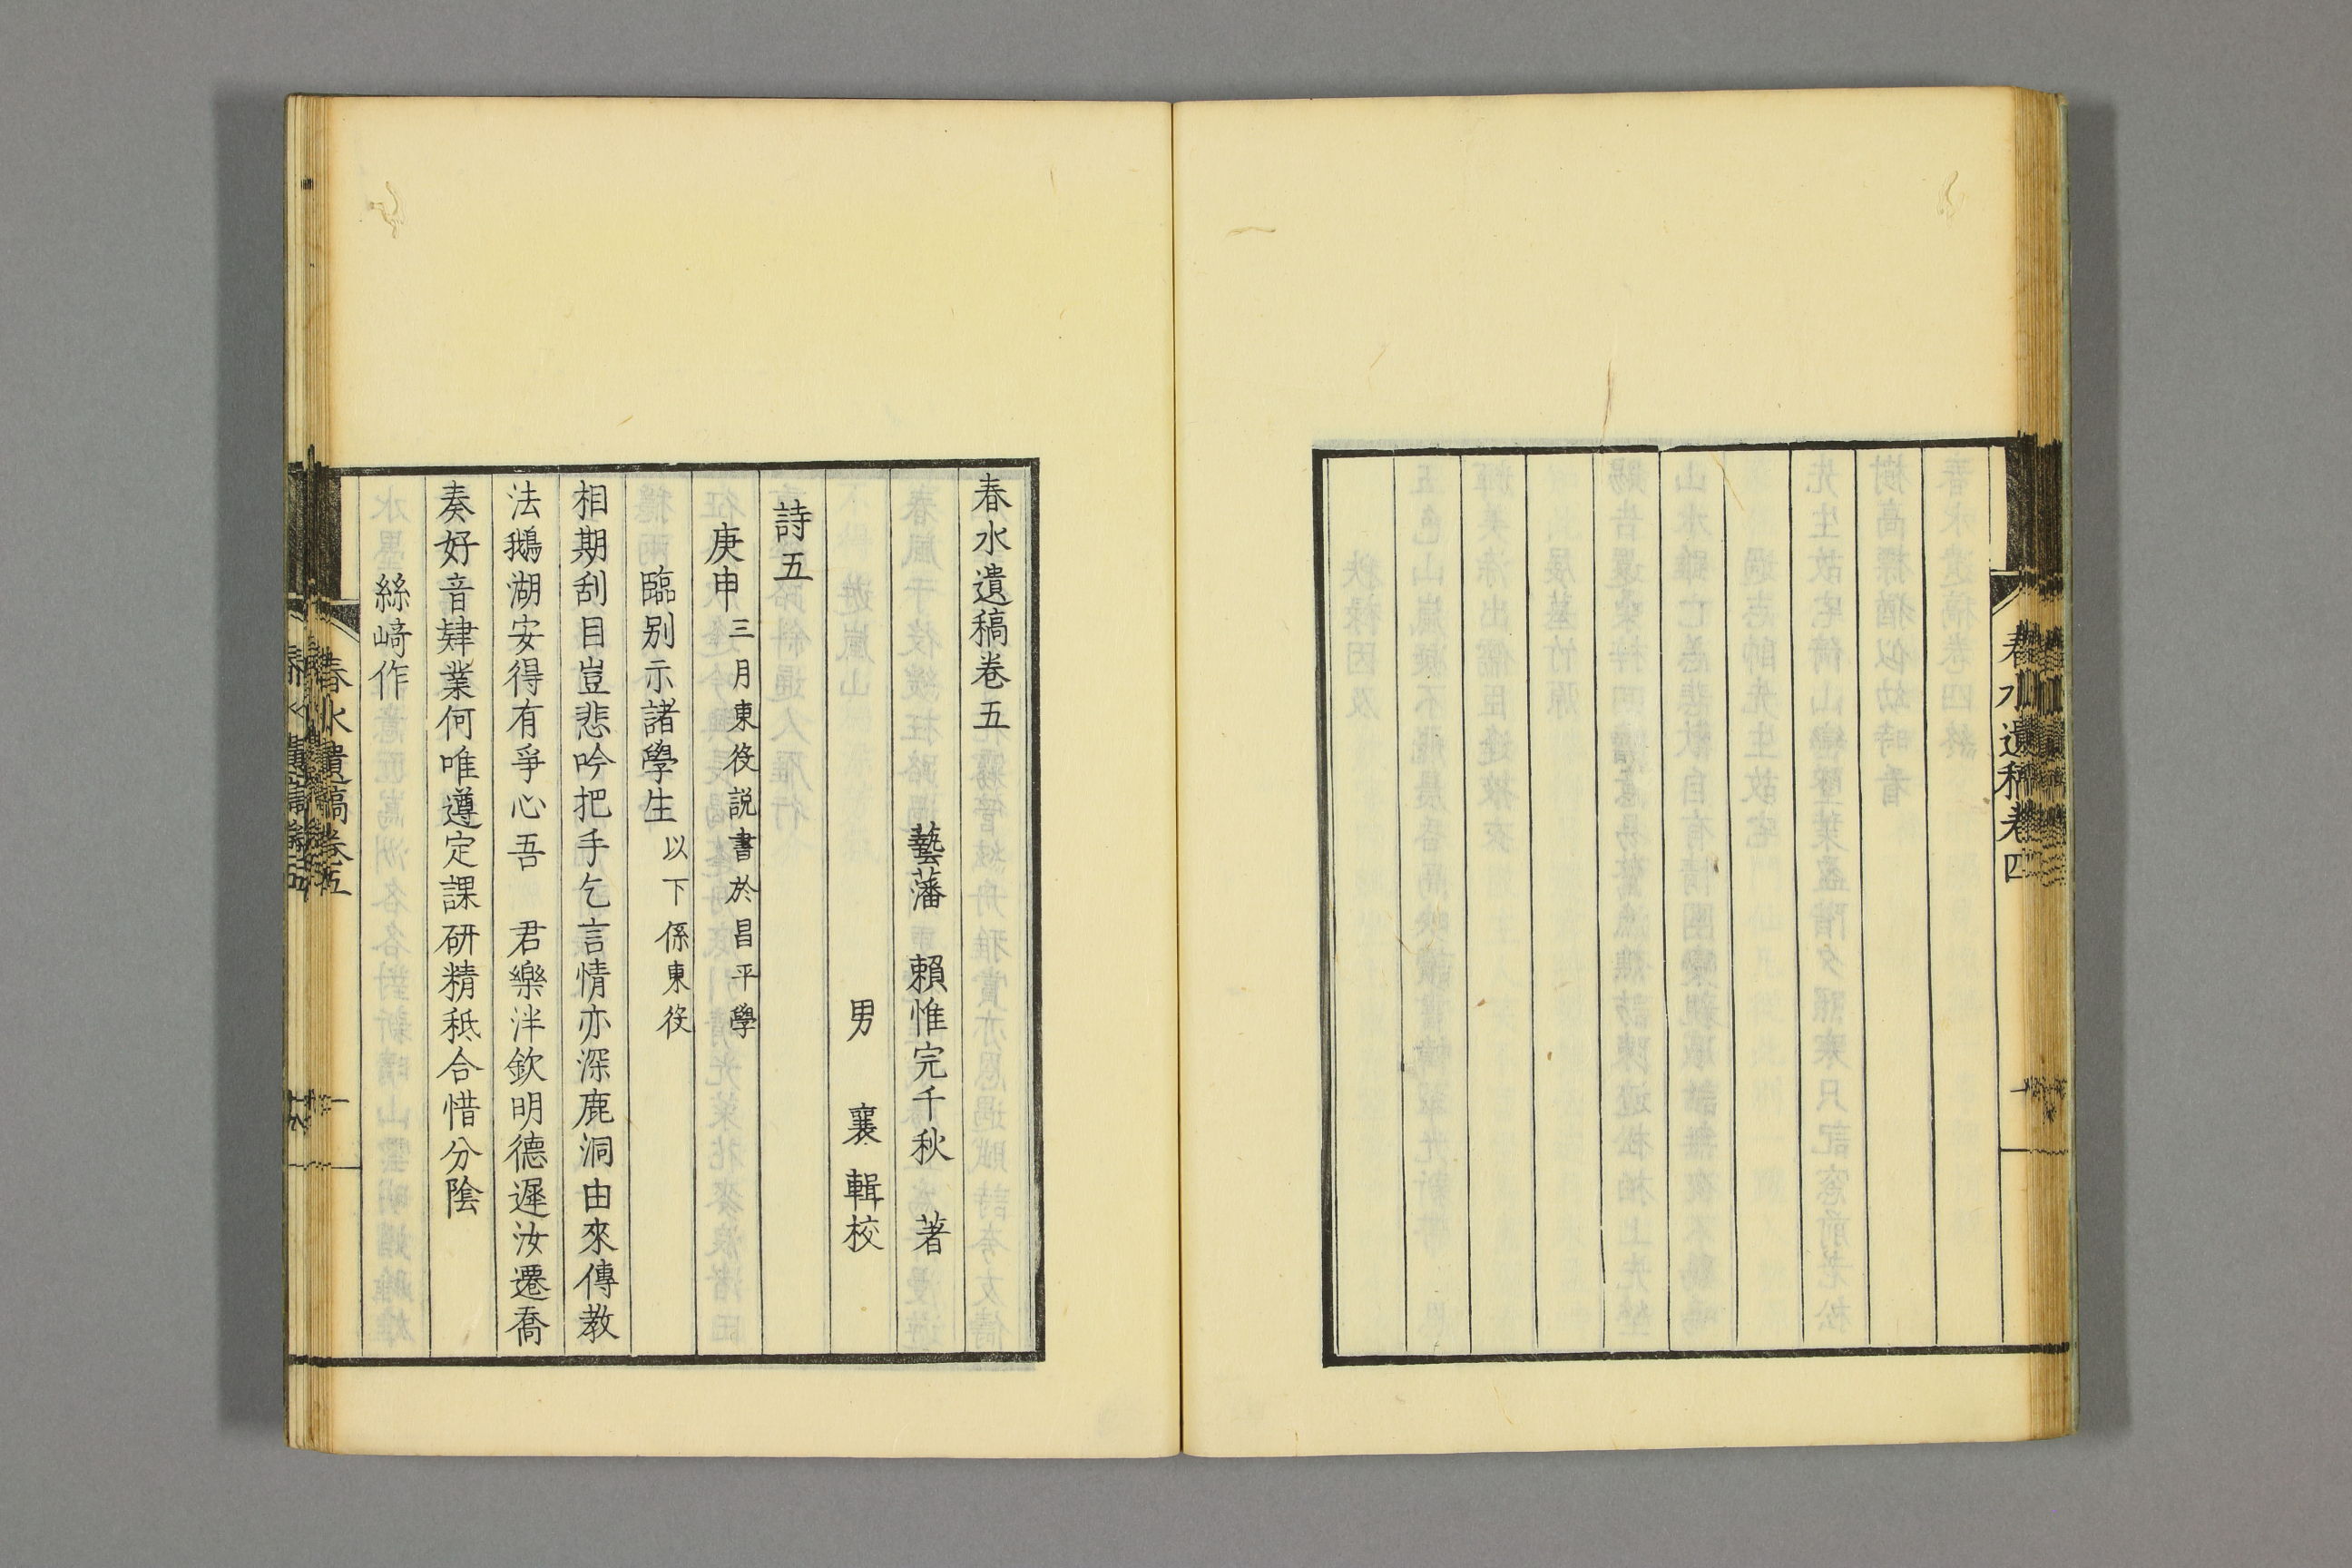 春水遺稿卷四
春水遺稿卷五
藝藩　賴惟完千秋　著
男　襄　輯校
詩五
庚申 三月東役説書於昌平學
臨別示諸學生 以下係東役
相期刮目豈悲吟把手乞言情亦深鹿洞由來傳教
法鵝湖安得有爭心吾　君樂泮欽明德遲汝遷喬
奏好音肄業何唯遵定課研精秪合惜分陰
絲崎作
春水遺稿卷五